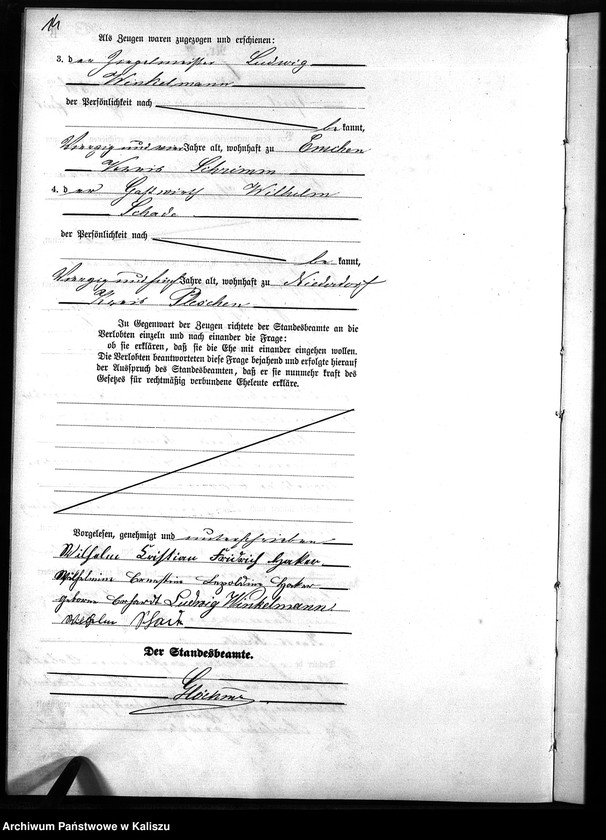 Als Zeugen waren zugezogen und erschienen:
3. der Ziegelmeister Ludwig
Winkelmann
der Persönlichkeit nach
bekannt,
Vierzig und vier Jahre alt, wohnhaft zu Emchen
Kreis Schrimm
4. der Gastwirth Wilhelm
Schade
der Persönlichkeit nach
bekannt,
Vierzig und fünf Jahre alt, wohnhaft zu Niederdorf
Kreis Pleschen
In Gegenwart der Zeugen richtete der Standesbeamte an die
Verlobten einzeln und nach einander die Frage:
ob sie erklären, daß sie die Ehe mit einander eingehen wollen.
Die Verlobten beantworteten diese Frage bejahend und erfolgte hierauf
der Ausspruch des Standesbeamten, daß er sie nunmehr kraft des
Gesetzes für rechtmäßig verbundene Eheleute erkläre.
Vorgelesen, genehmigt und unterschrieben
Wilhelm Cristian Fridrich Haker
Wilhelmine Ernestine Leopoldine Haker
geborne Ludwig Winkelmann
Wilhelm Schade
Der Standesbeamte.
Archiwum Państwowe w Kaliszu